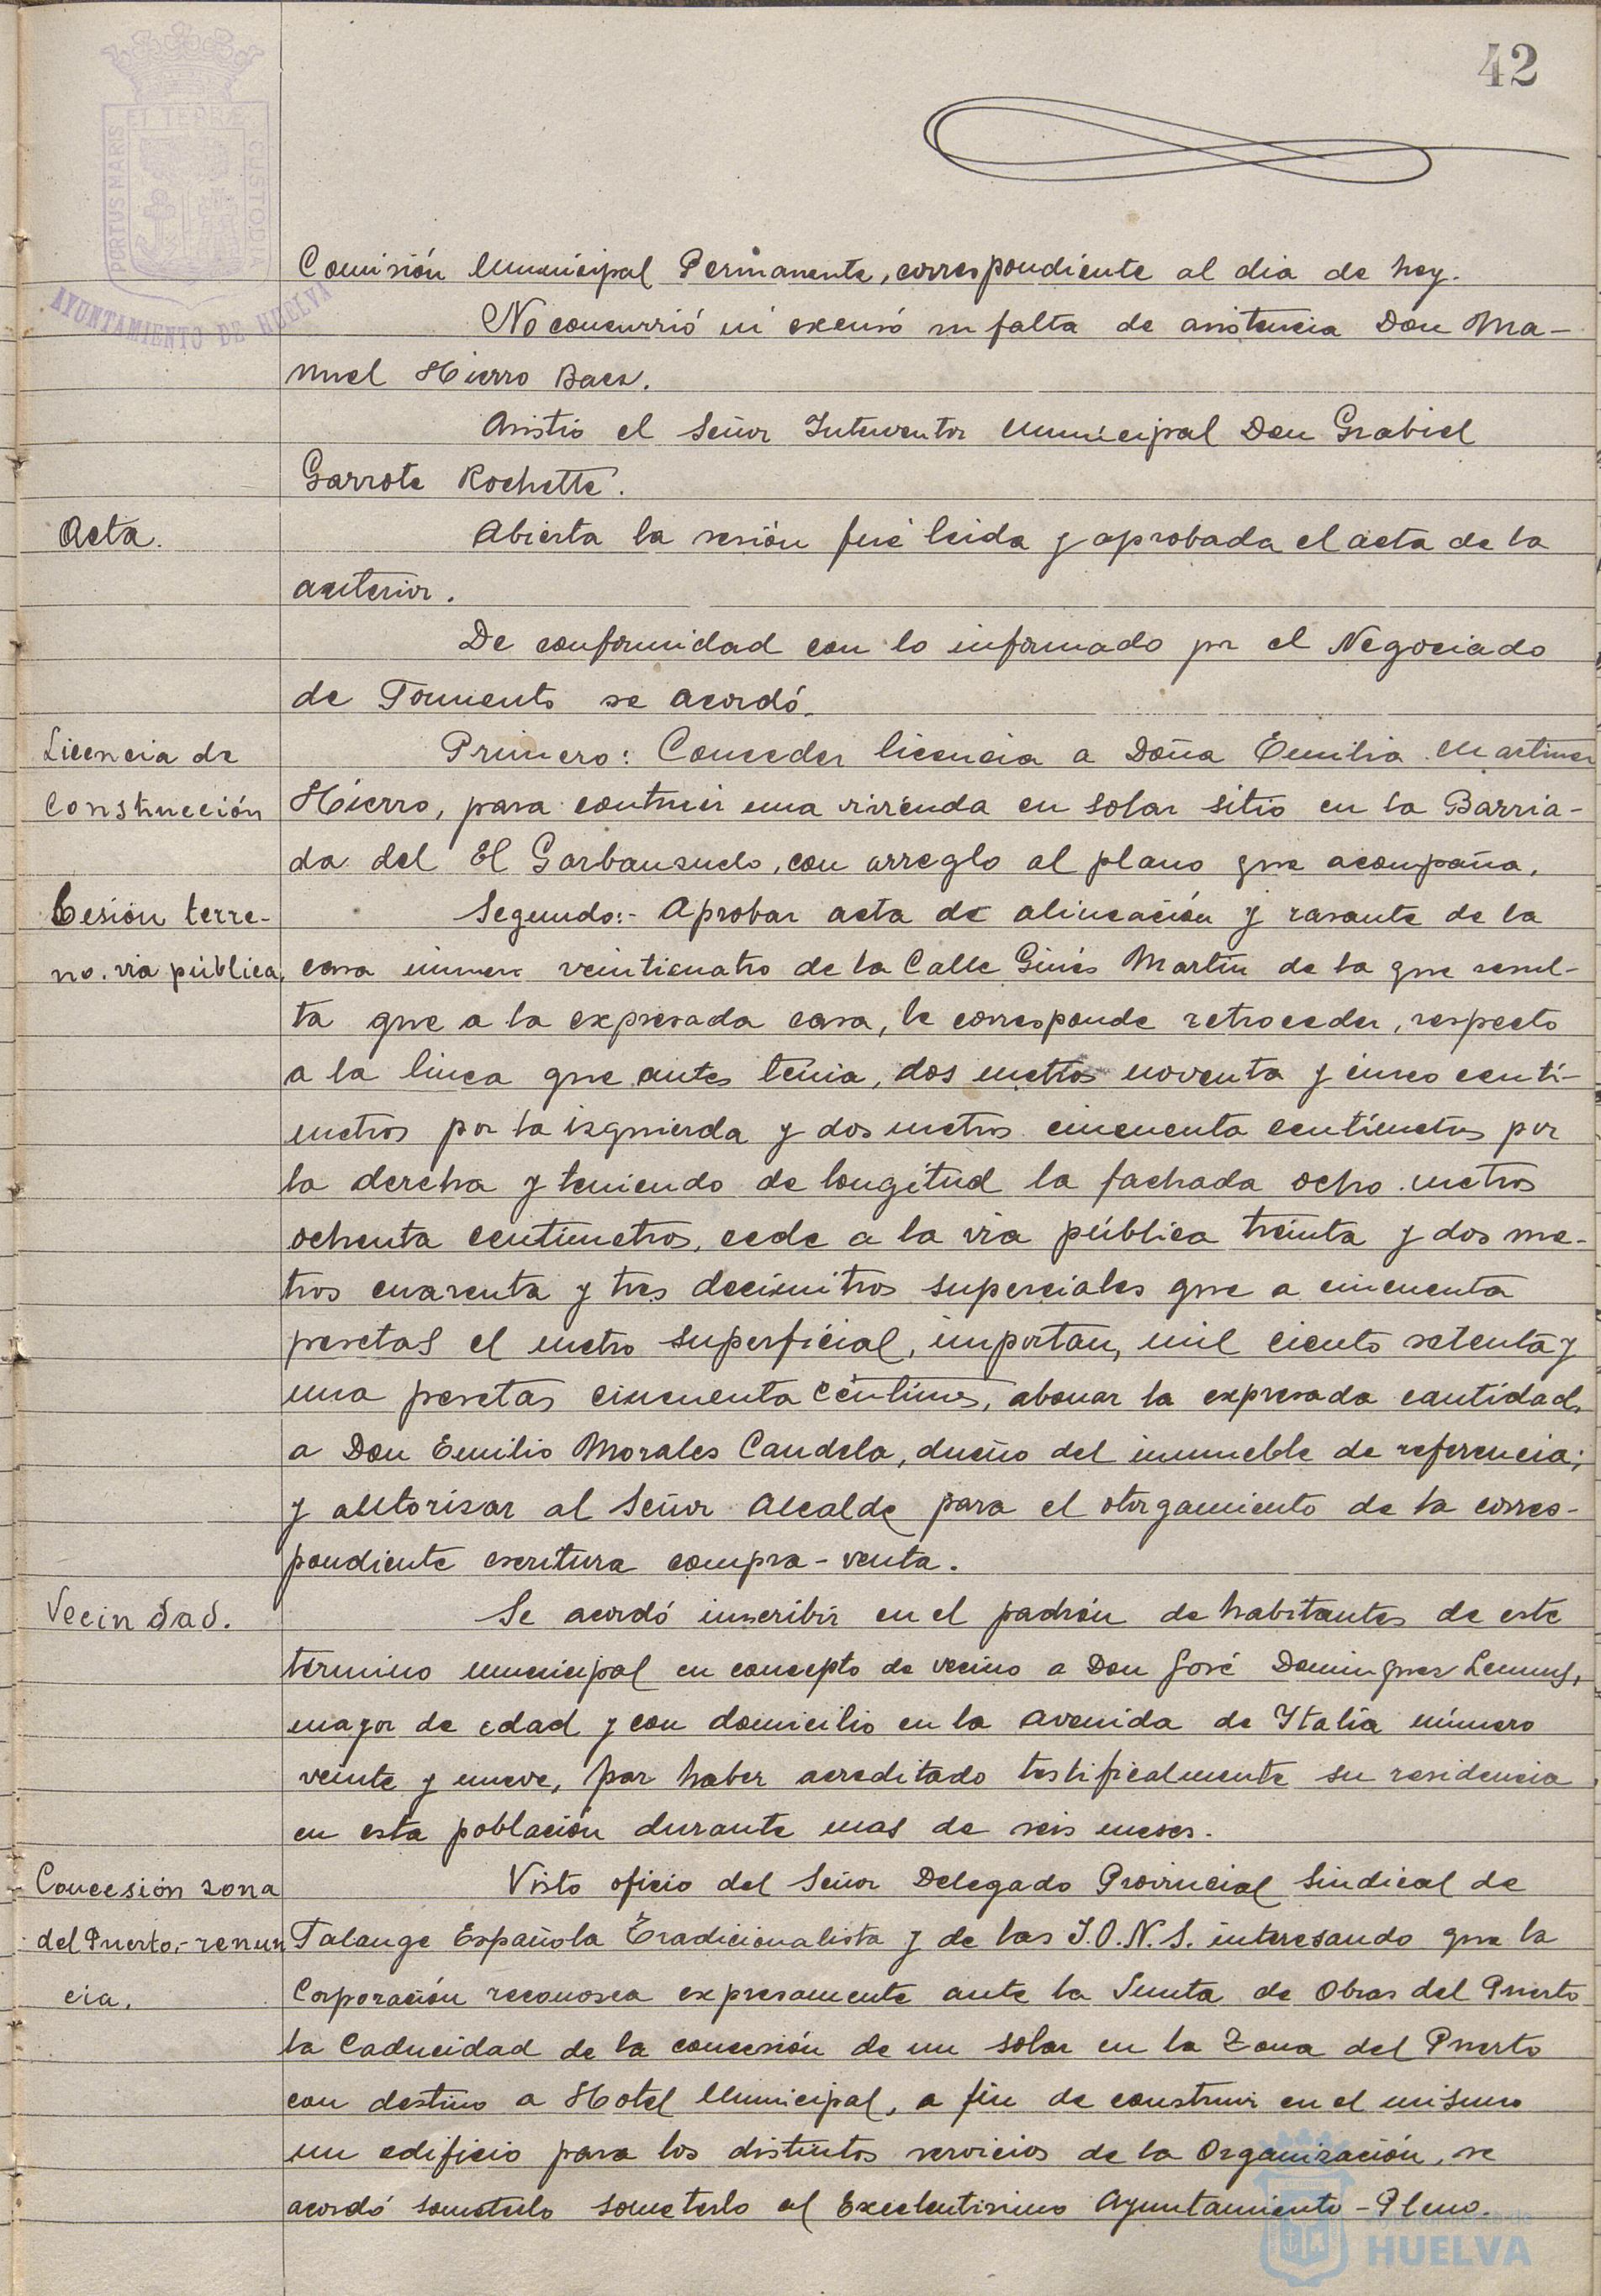 42
PORTUS MARIS ET TERRE CUSTODIA
AYUNTAMIENTO DE HUELVA
Comisión Municipal Permanente, correspondiente al dia de hoy.
No concurrió ni excusó su falta de asistencia Don Ma-
nuel Hierro Baez.
Asistió el Señor Interventor Municipal Don Grabiel
Garrote Rochette.
Acta.
Abierta la sesión fué leida y aprobada el acta de la
anterior.
De conformidad con lo informado por el Negociado
de Fomento se acordó.
Licencia de
Construcción
Primero: Conceder licencia a Doña Emilia Martinez
Hierro, para contruir una vivienda en solar sitio en la Barria-
da del El Garbanzuelo, con arreglo al plano que acompaña.
Cesión terre-
no. via pública.
Segundo:- Aprobar acta de alineación y rasante de la
casa número veinticuatro de la Calle Ginés Martín de la que resul-
ta que a la expresada casa, le corresponde retroceder, respecto
a la linea que antes tenia, dos metros noventa y cinco centí-
metros por la izquierda y dos metros cincuenta centímetros por
la derecha y teniendo de longitud la fachada ocho metros
ochenta centimetros, cede a la via pública treinta y dos me-
tros cuarenta y tres decimitros superciales que a cincuenta
pesetas el metro superficial, importan, mil ciento setenta y
una pesetas cincuenta céntimos, abonar la expresada cantidad
a Don Emilio Morales Candela, dueño del inmueble de referencia;
y autorizar al Señor Alcalde para el otorgamiento de la corres-
pondiente escritura compra-venta.
Vecindad.
Se acordó inscribir en el padrón de habitantes de este
término municipal en concepto de vecino a Don José Dominguez Lemus,
mayor de edad y con domicilio en la Avenida de Italia número
veinte y nueve, por haber acreditado testificalmente su residencia
en esta población durante mas de seis meses.
Concesión zona
del Puerto,- renun
cia.
Visto oficio del Señor Delegado Provincial Sindical de
Falange Española Tradicionalista y de las J.O.N.S. interesando que la
Corporación reconozca expresamente ante la Junta de Obras del Puerto
la Caducidad de la concesión de un solar en la Zona del Puerto
con destino a Hotel Municipal, a fin de construir en el mismo
un edificio para los distintos servicios de la Organización, se
acordó someterlo someterlo al Excelentisimo Ayuntamiento-Pleno.
HUELVA